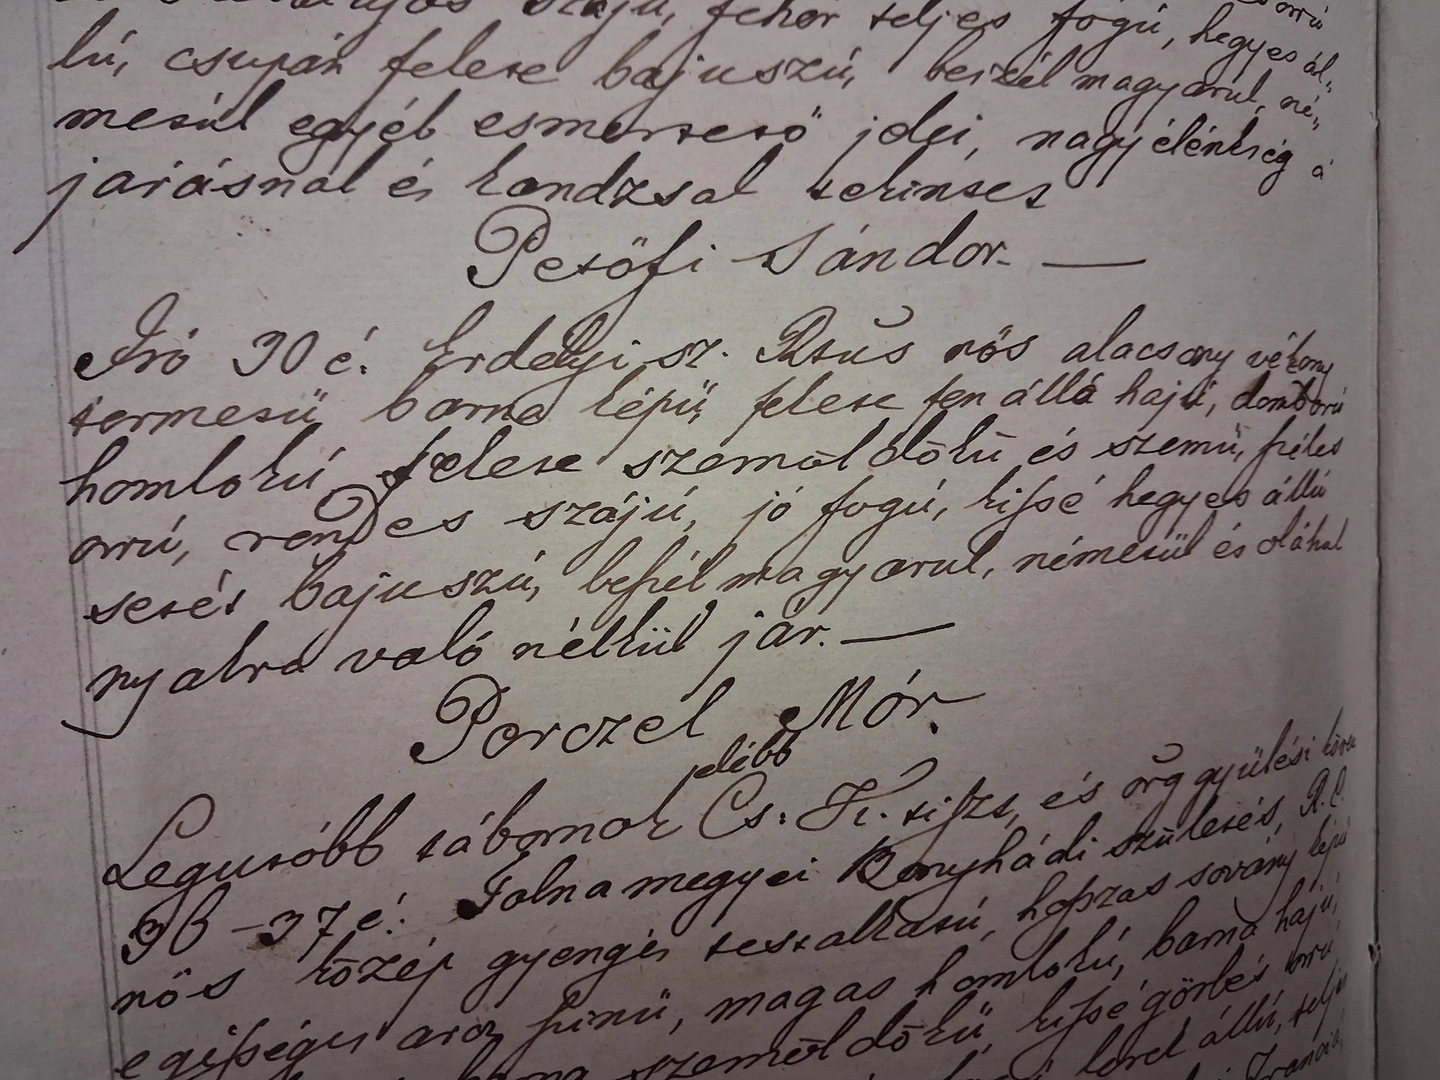 szájú, fehér teljes fogú, hegyes ál„
lú, csupán fekete bajuszú, beszél magyarul, né„
metül egyéb esmertető jelei, nagy élénkség a
járásnál és kandzsal tekintet
Petöfi Sándor. —
Iró 30 é. Erdélyi sz. Rtus nős alacsony vékony
termetü barna képü, fekete fen álló hajú, domború
homlokú fekete szemöldökü és szemü, hétes
orrú, rendes szájú, jó fogú, kissé hegyes állú
setét bajuszú, beszél magyarul, németül és oláhul
nyakra való nélkül jár. —
Perczel Mór.
Legutóbb tábornok előbb Cs. K. tiszt, és org gyülési
36-37 é. Tolna megyei Bonyhádi születés, R.C.
nős közép gyenge testalkatú, hosszas sovány képü
egisséges arcz szinü, magas homlokú, barna hajú,
barna szemöldökü, kissé görbés orrú
kerek állú,